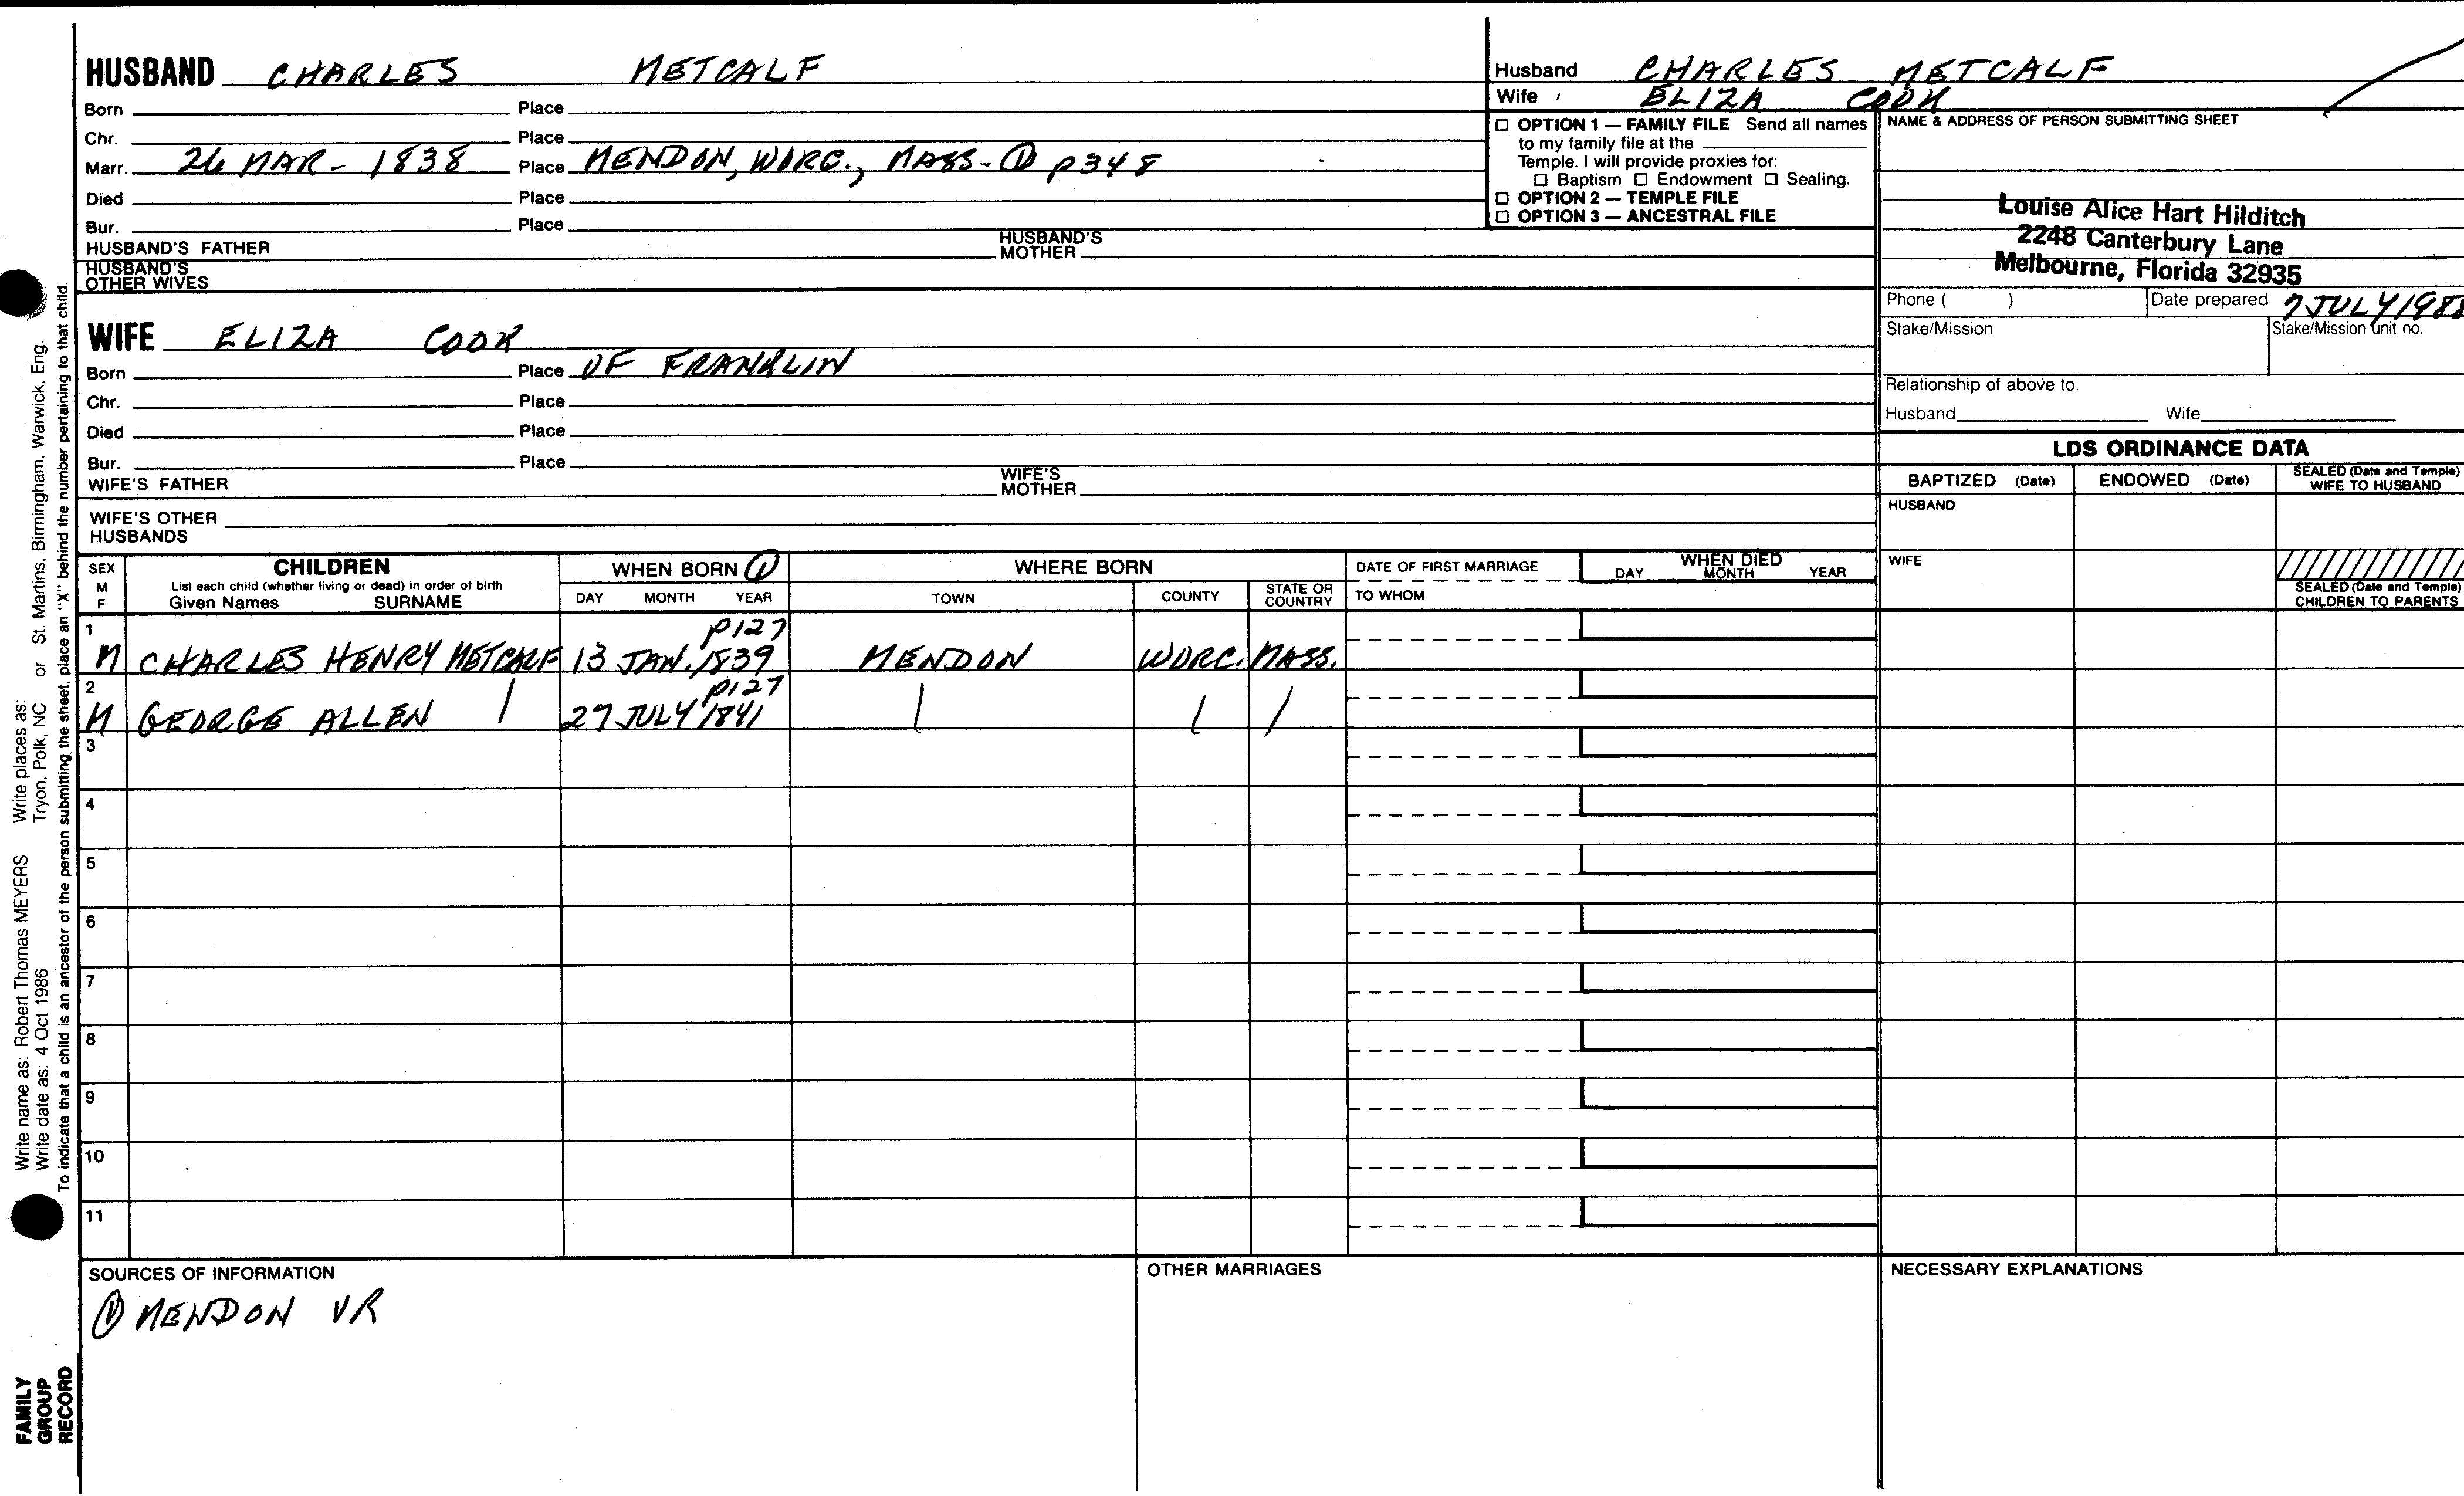 HUSBAND CHARLES METCALF
Born Place
Chr. Place
Marr. 26 MAR - 1838 Place MENDON, WORC., MASS - ① p348
Died Place
Bur. Place
HUSBAND'S FATHER HUSBAND'S MOTHER
HUSBAND'S OTHER WIVES
WIFE ELIZA COOK
Born Place OF FRANKLIN
Chr. Place
Died Place
Bur. Place
WIFE'S FATHER WIFE'S MOTHER
WIFE'S OTHER HUSBANDS
Husband CHARLES METCALF
Wife ELIZA COOK
☐ OPTION 1 — FAMILY FILE Send all names
to my family file at the
Temple. I will provide proxies for:
☐ Baptism ☐ Endowment ☐ Sealing.
☐ OPTION 2 — TEMPLE FILE
☐ OPTION 3 — ANCESTRAL FILE
NAME & ADDRESS OF PERSON SUBMITTING SHEET
Louise Alice Hart Hilditch
2248 Canterbury Lane
Melbourne, Florida 32935
Phone ( ) Date prepared 7 JULY 1988
Stake/Mission Stake/Mission unit no.
Relationship of above to:
Husband Wife
LDS ORDINANCE DATA
BAPTIZED (Date) ENDOWED (Date) SEALED (Date and Temple) WIFE TO HUSBAND
HUSBAND
WIFE
SEALED (Date and Temple) CHILDREN TO PARENTS
SEX M F
CHILDREN
List each child (whether living or dead) in order of birth
Given Names SURNAME
WHEN BORN ①
DAY MONTH YEAR
WHERE BORN
TOWN COUNTY STATE OR COUNTRY
DATE OF FIRST MARRIAGE
TO WHOM
WHEN DIED
DAY MONTH YEAR
1 p127
M CHARLES HENRY METCALF 13 JAN. 1839 MENDON WORC. MASS.
2 p127
M GEORGE ALLEN | 27 JULY 1841 | | |
3
4
5
6
7
8
9
10
11
SOURCES OF INFORMATION
① MENDON VR
OTHER MARRIAGES
NECESSARY EXPLANATIONS
Write name as: Robert Thomas MEYERS Write places as: St. Martins, Birmingham, Warwick, Eng.
Write date as: 4 Oct 1986 Tryon, Polk, NC or
To indicate that a child is an ancestor of the person submitting the sheet, place an "X" behind the number pertaining to that child.
FAMILY
GROUP
RECORD